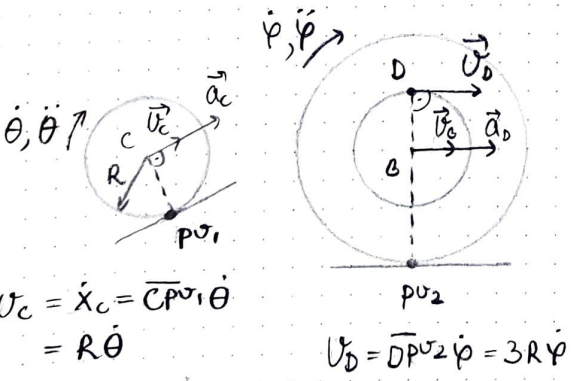 θ̇, θ̈
C
R
v⃗_C
a⃗_C
pv₁
v_C = ẋ_C = C̅p̅v₁ θ̇
= Rθ̇
φ̇, φ̈
D
v⃗_D
B
v⃗_B
a⃗_D
pv₂
v_D = D̅P̅v₂ φ̇ = 3Rφ̇